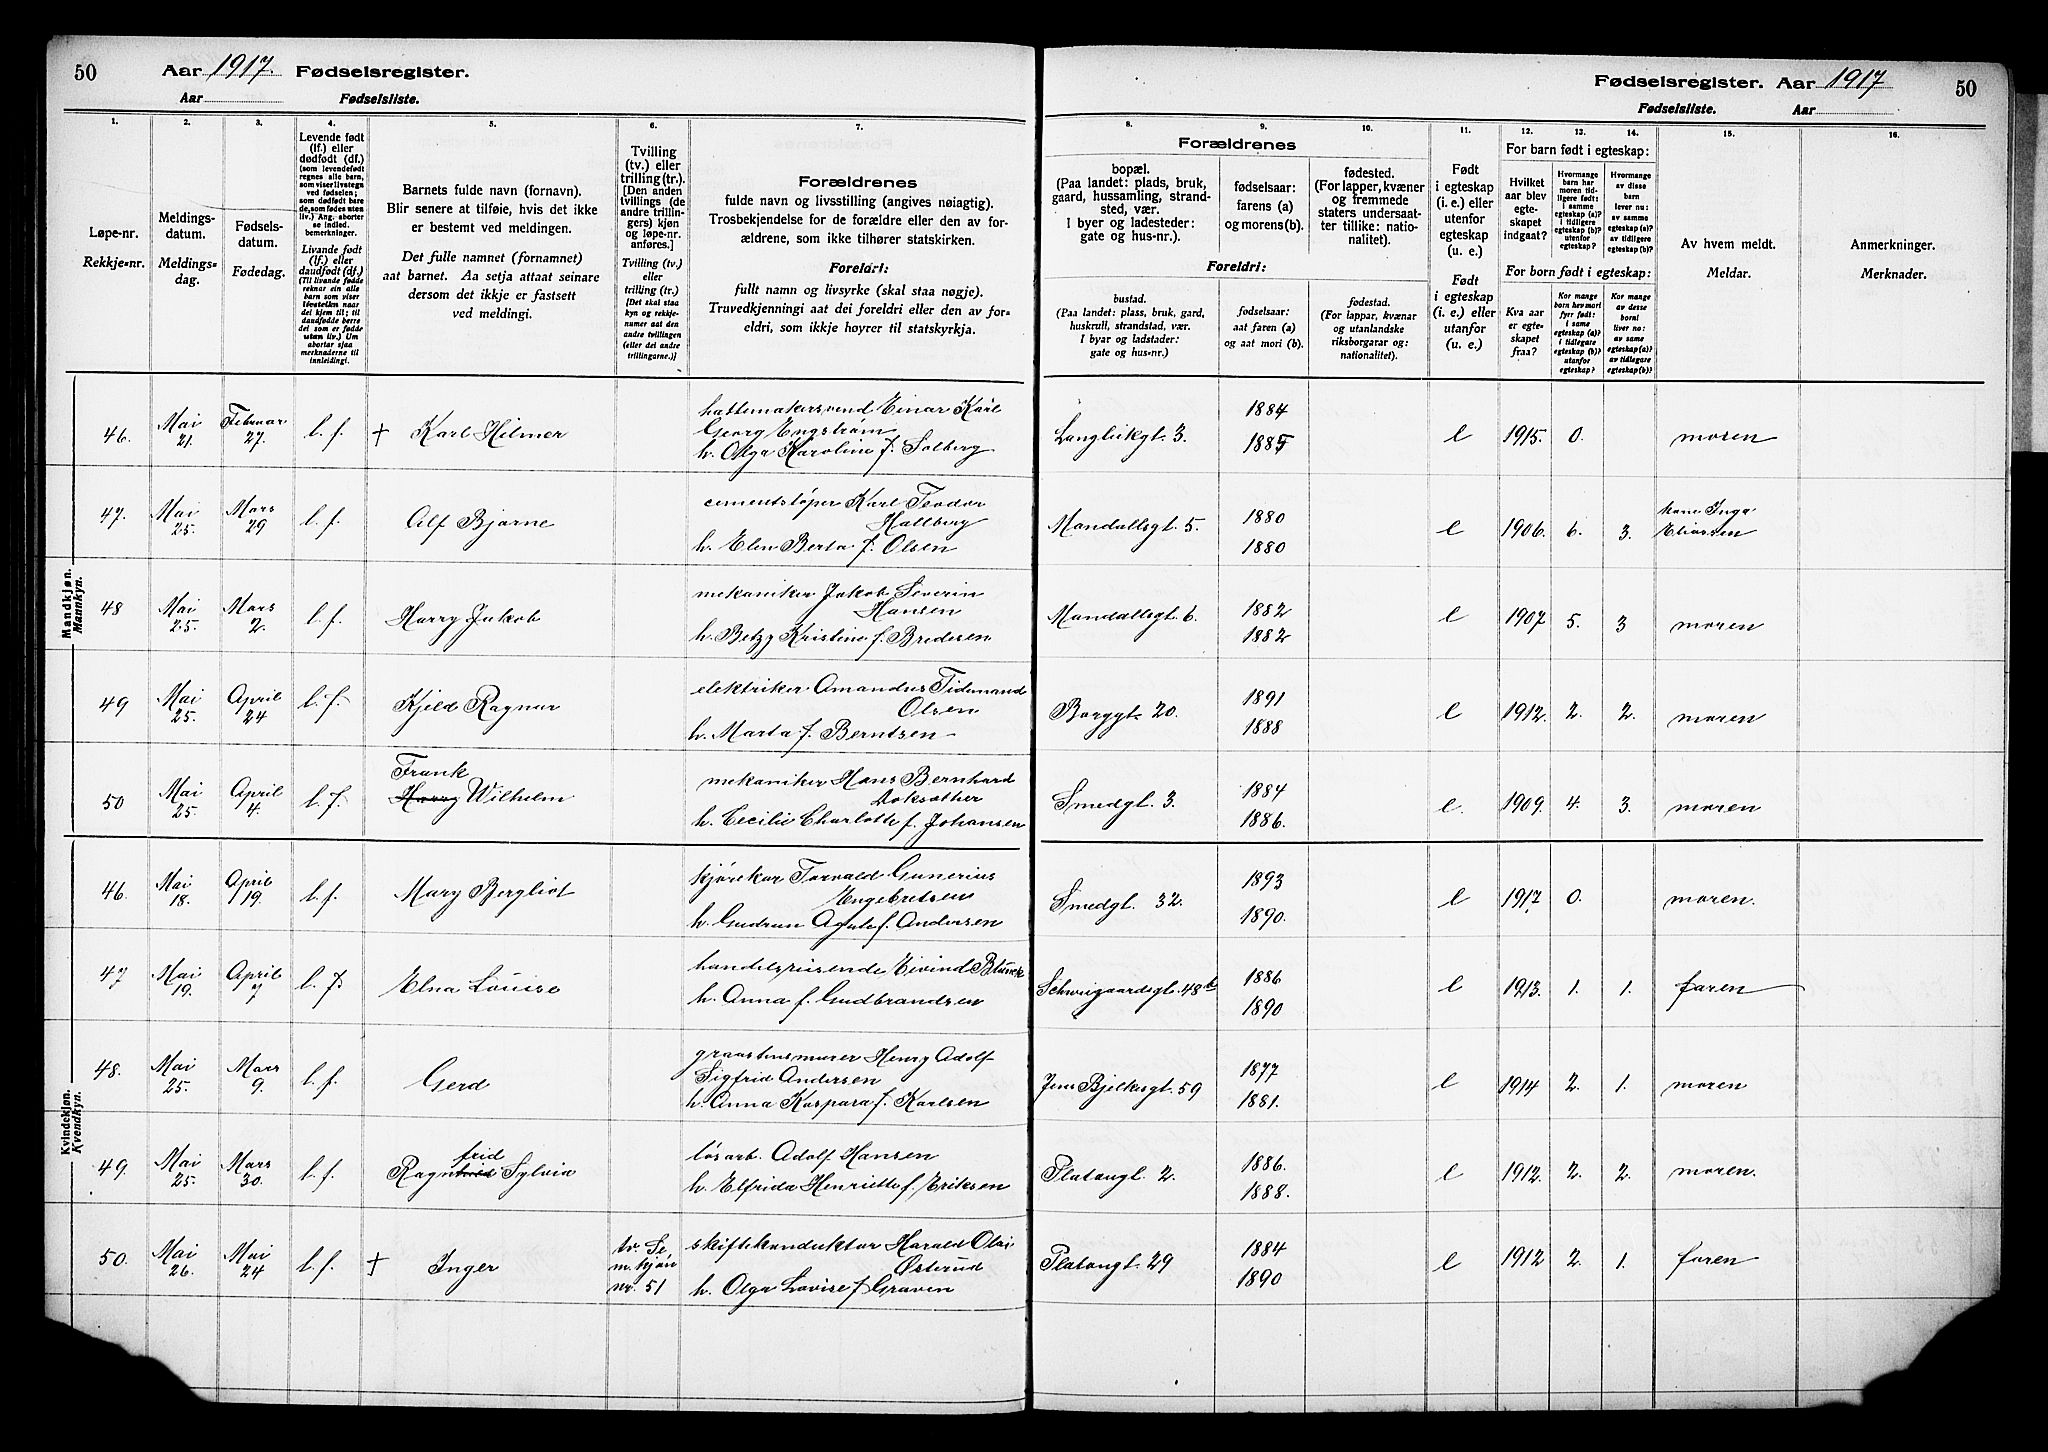 50
Aar 1917. Fødselsregister.
Aar Fødselsliste.
Fødselsregister. Aar 1917
50
Fødselsliste. Aar
1.
Løpe-nr.
Rekkje-nr.
2.
Meldings-
datum.
Meldings-
dag.
3.
Fødsels-
datum.
Fødedag.
4.
Levende født
(lf.) eller
dødfødt (df.)
(som levendefødt
regnes alle barn,
som viser livstegn
ved fødselen;
som dødfødt bare
de, som fødes uten
liv.) Ang. aborter
se indled.
bemerkninger.
Livande født
(lf.) eller
daudfødt (df.)
(Til livande fødde
reknar ein alle
born som viser
livsteikn naar
dei kjem til; til
daudfødde berre
dei som er fødde
utan liv.) Um
abortar sjaa
merknaderne til
innleidingi.
5.
Barnets fulde navn (fornavn).
Blir senere at tilføie, hvis det ikke
er bestemt ved meldingen.
Det fulle namnet (fornamnet)
aat barnet. Aa setja attaat seinare
dersom det ikkje er fastsett
ved meldingi.
6.
Tvilling
(tv.) eller
trilling (tr.).
[Den anden
tvillings (de
andre trillin-
gers) kjøn
og løpe-nr.
anføres.]
Tvilling (tv.)
eller
trilling (tr.)
[Det skal staa
kyn og rekkje-
numer aat den
andre tvillingen
(eller dei andre
trillingarne.)]
7.
Forældrenes
fulde navn og livsstilling (angives nøiagtig).
Trosbekjendelse for de forældre eller den av for-
ældrene, som ikke tilhører statskirken.
Foreldri:
fullt namn og livsyrke (skal staa nøgje).
Truvedkjenningi aat dei foreldri eller den av for-
eldri, som ikkje høyrer til statskyrkja.
Forældrenes
8.
bopæl.
(Paa landet: plads, bruk,
gaard, hussamling, strand-
sted, vær.
I byer og ladesteder:
gate og hus-nr.).
9.
fødselsaar:
farens (a)
og morens (b).
10.
fødested.
(For lapper, kvæner
og fremmede
staters undersaat-
ter tillike: natio-
nalitet).
Foreldri:
bustad.
(Paa landet: plass, bruk, gard,
huskrull, strandstad, vær.
I byar og ladstader:
gate og hus-nr.)
fødselsaar:
aat faren (a)
og aat mori (b).
fødestad.
(For lappar, kvænar
og utanlandske
riksborgarar og:
nationalitet).
11.
Født
i egteskap
(i. e.) eller
utenfor
egteskap
(u. e.)
Født
i egteskap
(i. e.) eller
utanfor
(u. e.)
For barn født i egteskap:
12.
Hvilket
aar blev
egte-
skapet
indgaat?
13.
Hvormange
barn har
moren tid-
ligere født:
i samme
egteskap (a)?
i tidligere
egteskap (b)?
utenfor
egteskap?
14.
Hvormange
av disse
barn
lever nu:
av samme
egteskap (a)?
av tidligere
egteskap (b)?
For born født i egteskap:
Kva aar
er egte-
skapet
fraa?
Kor mange
born hev mori
fyrr født:
i same
egteskap (a)?
i tidlegare
egteskap (b)?
utanfor
egteskap?
Kor mange
av desse
borni
liver no:
av same
egteskap (a)?
av tidlegare
egteskap (b)?
15.
Av hvem meldt.
Meldar.
16.
Anmerkninger.
Merknader.
Mandkjøn.
Mannkyn.
46. Mai 21. Februar 27. l. f. † Karl Hilmer
hattemakersvend Einar Karl
Georg Engstrøm
h. Olga Karoline f. Solberg
1884 1885 e 1915. 0. moren
47. Mai 25. Mars 29 l. f. Alf Bjarne
cementstøper Karl Teodor
Hallberg
h. Elen Berta f. Olsen
Mandallsgt. 5. 1880 1880 e 1906. 6. 3. kone Inga Eliassen
48 Mai 25. Mars 2. l. f. Harry Jakob
mekaniker Jakob Severin
Hansen
h. Betzy Kristine f. Bredesen
Mandallsgt. 6. 1882 1882 e 1907. 5. 3 moren
49 Mai 25. April 24 l. f. Kjeld Ragnar
elektriker Amandus Tidemand
Olsen
h. Marta f. Berntsen
Borggt. 20. 1891 1888 e 1912. 2. 2. moren
50 Mai 25. April 4. l. f. Frank
Harry Wilhelm
mekaniker Hans Bernhard
h. Cecilie Charlotte f. Johansen
Smedgt. 3. 1884 1886. e 1909. 4. 3. moren
Kvindekjøn.
Kvendkyn.
46. Mai 18. April 19. l. f. Mary Bergliot
kjørekar Torvald Gunerius
Engebretsen
h. Gudrun Agate f. Andersen
Smedgt. 32. 1893 1890. e 1917. 0. moren.
47 Mai 19. April 7 l. f. Elna Louise
handelsreisende Eivind Blunck
h. Anna f. Gudbrandsen
Schweigaardsgt. 48b 1886 1890 e 1913. 1. 1. faren
48. Mai 25. Mars 9. l. f. Gerd
graastensmurer Henry Adolf
Sigfrid Andersen
h. Anna Kaspara f. Karlsen
Jens Bjelkesgt. 59 1877 1881. e 1914 2. 1. moren
49. Mai 25. Mars 30. l. f. frid
Ragnhild Sylvia
løsarb. Adolf Hansen
h. Elfrida Henriette f. Eriksen
Platougt. 2. 1886. 1888. e 1912. 2. 2. moren.
50. Mai 26. Mai 24 l. f. † Inger
tv. Se
m.kjøn
nr. 51
skiftekonduktør Harald Olai
Østerud
h. Olga Lovise f. Graven
Platougt. 29 1884 1890 e 1912 2. 1. faren